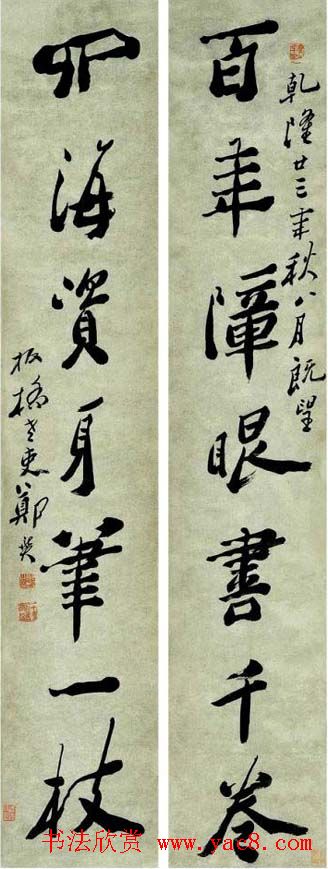 百年障眼書千卷
乾隆廿三年秋八月既望
四海資身筆一枝
板橋老叟鄭燮
书法欣赏 www.yac8.com